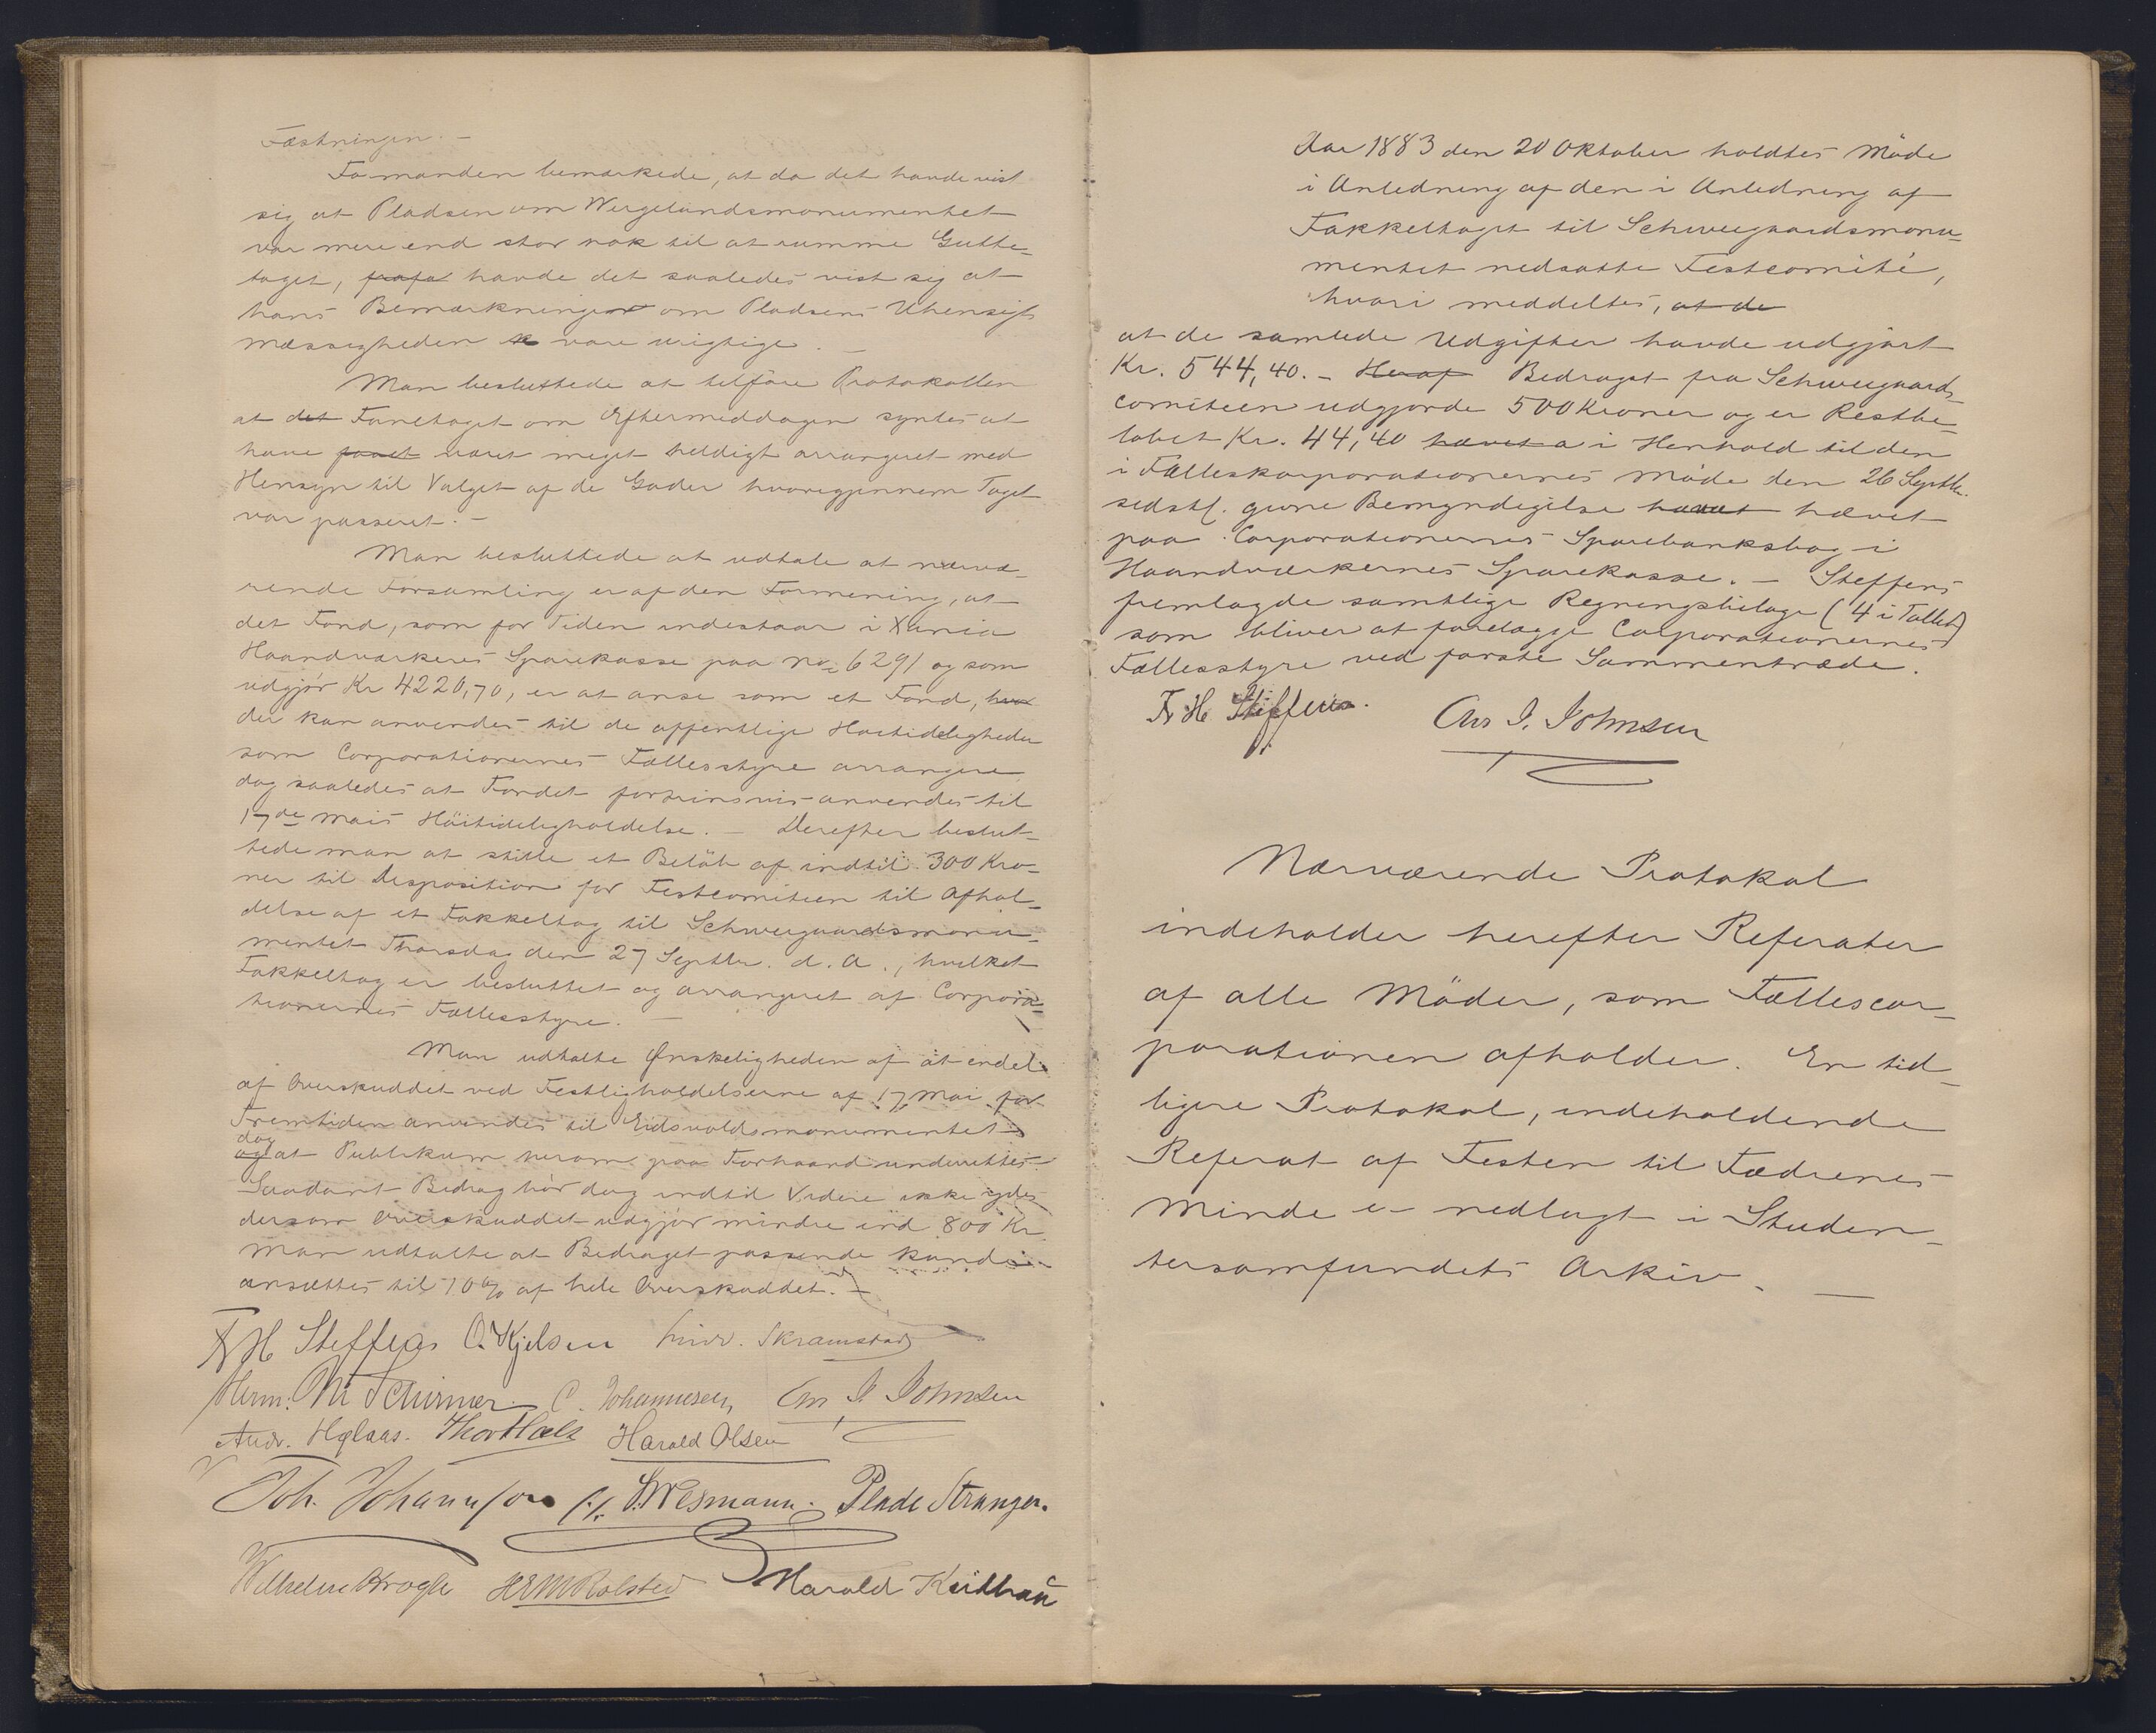 Fæstningen. –
Formanden bemærkede, at da det havde vist
sig at Pladsen om Wergelandsmonumentet
var mere end stor nok til at rumme Gutte-
toget, havde det saaledes vist sig at
hans Bemærkninger om Pladsens Uhensigts
mæssigheden vare urigtige. –
Man besluttede at tilføre Protokollen
at det Fanetoget om Eftermiddagen syntes at
have været meget heldigt arrangeret med
Hensyn til Valget af de Gader hvorigjennem Toget
var passeret. –
Man besluttede at udtale at nærvæ-
rende Forsamling er af den Formening, at
det Fond, som for Tiden indestaar i Xania
Haandværkeres Sparekasse paa No 6291 og som
udgjør Kr 4220,70, er at anse som et Fond,
der kan anvendes til de offentlige Høitideligheder
som Corporationernes Fællesstyre arrangere
dog saaledes at Fondet fortrinsvis anvendes til
17de Mais Høitideligholdelse. – Derefter beslut-
tede man at stille et Beløb af indtil 300 Kro-
ner til Disposition for Festcomiteen til Afhol-
delse af et Fakkeltog til Schweigaardsmonu-
mentet Thorsdag den 27 Septbr. d. A., hvilket
Fakkeltog er besluttet og arrangeret af Corpora-
tionernes Fællesstyre. –
Man udtalte Ønskeligheden af at endel
af Overskuddet ved Festligholdelserne af 17 Mai for
Fremtiden anvendes til Eidsvoldsmonumentet
dog
og at Publikum herom paa Forhaand underrettes –
Saadant Bidrag bør dog indtil Videre ikke ydes
dersom Overskuddet udgjør mindre end 800 Kr
Man udtalte at Bidraget passende kunde
ansættes til 10% af hele Overskuddet. –
Fr H Steffens O. Kjelsen Skramstad
Herm. M Schirmer. C. Johannesen, Chr I. Johnsen
Andr. Hølaas. Thor Hals Harald Olsen
Joh. Johannson S. Wesmann. Plade Stranger.
Wilhelm Krogh HEM Rolsted Harald Keilhau
Aar 1883 den 20 Oktober holdtes Møde
i Anledning af den i Anledning af
Fakkeltoget til Schweigaardsmonu-
mentet nedsatte Festcomité,
hvori meddeltes, at de
at de samlede Udgifter havde udgjort
Kr. 544,40. – Heraf Bidraget fra Schweigaards-
comiteen udgjorde 500 Kroner og er Restbe-
løbet Kr. 44,40 hævet a i Henhold til den
i Fælleskorporationernes Møde den 26 Septbr.
sidstl. givne Bemyndigelse hævet hævet
paa Corporationernes Sparebanksbog i
Haandværkernes Sparekasse. – Steffens
fremlagde samtlige Regningsbilage (4 i Tallet)
som bliver at forelægge Corporationernes
Fællesstyre ved første Sammentræde.
Fr H Steffens. Chr I. Johnsen
Nærværende Protokol
indeholder herefter Referater
af alle Møder, som Fællescor-
porationen afholder. En tid-
ligere Protokol, indeholdende
Referat af Festen til Fædrenes
Minde er nedlagt i Studen-
tersamfundets Arkiv. –